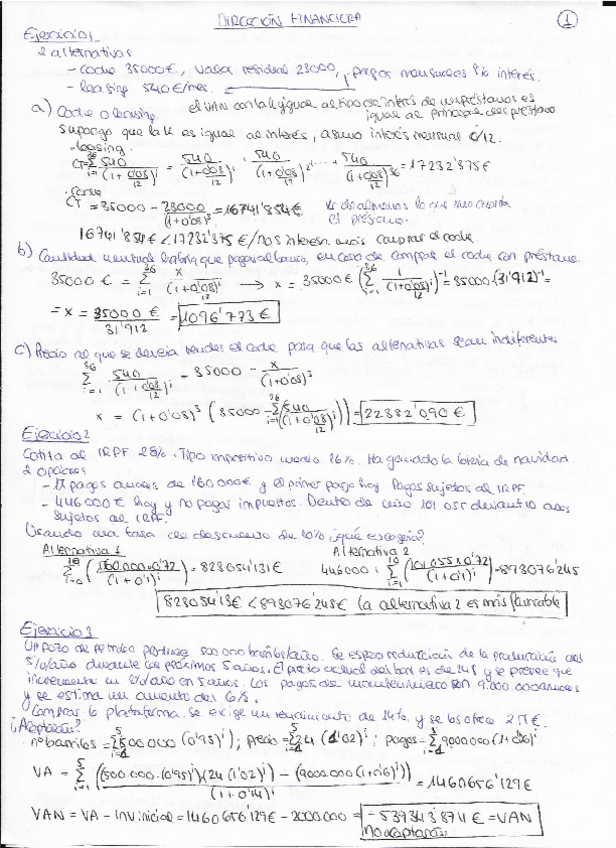 DIRECCIÓN FINANCIERA
1
Ejercicio 1
2 alternativas
- coche 35000€, valor residual 23000, pagos mensuales 8% interés.
- leasing 540€/mes.
a) Coche o leasing. el VAN con la k igual al tipo de interés de un préstamo es
igual al principal del préstamo
Supongo que la k es igual al interés, asumo interés mensual 0/12.
- leasing
CT = Σ 36 i=1 540/(1+0'08/12)^i = 540/(1+0'08/12)^i + 540/(1+0'08/12)^i ... + 540/(1+0'08/12)^36 = 17232'875€
- Coche
CT = 35000 - 23000/(1+0'08)^3 = 16741'854€
el préstamo.
16741'854€ < 17232'875€ / nos interesa más comprar el coche.
b) Cantidad mensual habría que pagar al banco, en caso de comprar el coche con préstamo
35000€ = Σ 36 i=1 x/(1+0'08/12)^i → x = 35000€ (Σ 36 i=1 1/(1+0'08/12)^i)^-1 = 35000 (31'912)^-1 =
= x = 35000€/31'912 = 1096'773€
c) Precio al que se debería vender el coche para que las alternativas sean indiferentes
Σ 36 i=1 540/(1+0'08/12)^i = 35000 - x/(1+0'08)^3
x = (1+0'08)^3 (35000 - Σ 36 i=1 (540/(1+0'08/12)^i)) = 22382'090€
Ejercicio 2
Cotiza al IRPF 28%. Tipo impositivo 16%. Ha ganado la lotería de navidad
2 opciones
- pagos anuales de 160.000€ y el primer pago hoy. Pagos sujetos al IRPF.
- 446000€ hoy y no pagas impuestos. Dentro de un año 101.055 durante 10 años
sujetos al IRPF.
Usando una tasa de descuento de 10% ¿qué escogería?
Alternativa 1 Alternativa 2
Σ i=0 (160.000×0'72/(1+0'1)^i) = 823054'131€ 446000 + Σ 10 i=1 (101055×0'72/(1+0'1)^i) = 893076'245
823054'13€ < 893076'245€ la alternativa 2 es más favorable
Ejercicio 3
Un pozo de petróleo produce 500.000 barriles/año. Se espera reducción de la producción del
5%/año durante los próximos 5 años. El precio actual del barril es de 24$ y se prevee que
incremente un 2%/año en 5 años. Los pagos de mantenimiento son 9.000.000 anuales
y se estima un aumento del 6%.
Comprar la plataforma. Se exige un rendimiento de 14%, y se los ofrece 2M€.
¿Aceptarán?
nº barriles = Σ 5 i=1 500.000 (0'95)^i; precio = Σ 5 i=1 24 (1'02)^i; pagos = Σ 5 i=1 9000000 (1+0'06)^i
VA = Σ 5 i=1 ((500.000·(0'95)^i)(24(1'02)^i) - (9000.000(1+0'06)^i))/(1+0'14)^i = 1460656'129€
VAN = VA - INV inicial = 1460656'129€ - 2000000 = -539343'871€ = VAN
No aceptarán